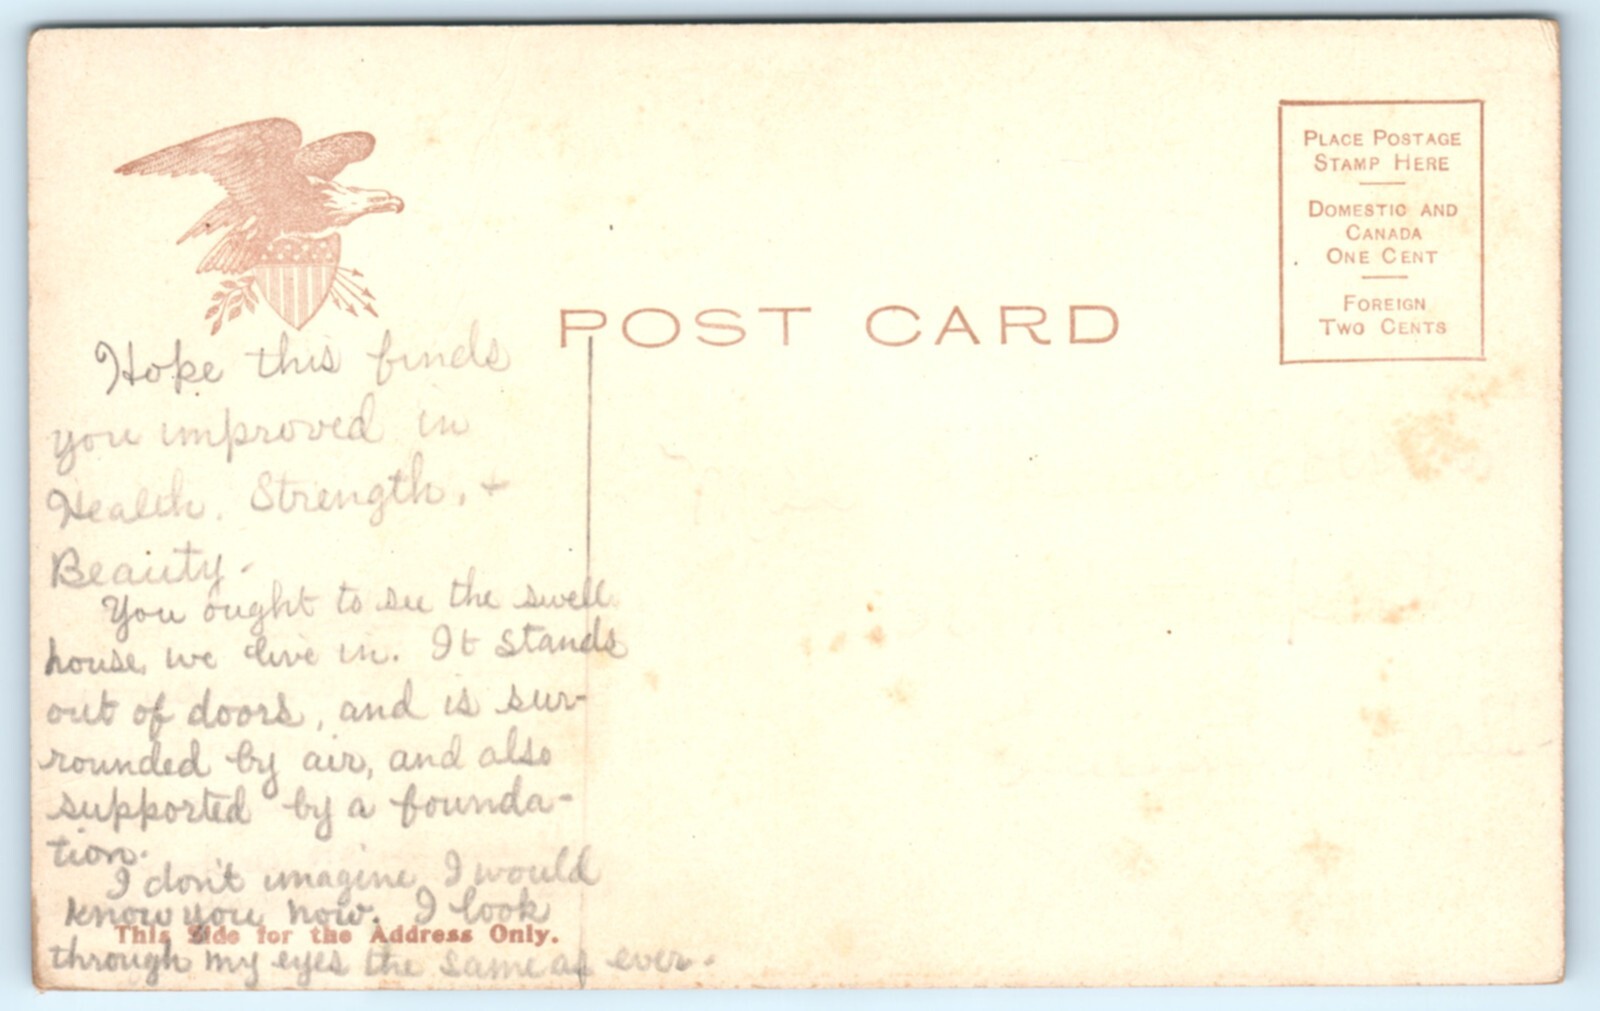 PLACE POSTAGE
STAMP HERE
DOMESTIC AND
CANADA
ONE CENT
FOREIGN
TWO CENTS
POST CARD
Hope this finds
you improved in
Health, Strength, +
Beauty.
You ought to see the swell
house we live in. It stands
out of doors, and is sur-
rounded by air, and also
supported by a founda-
tion.
I don't imagine I would
know you now. I look
This Side for the Address Only.
through my eyes the same as ever.